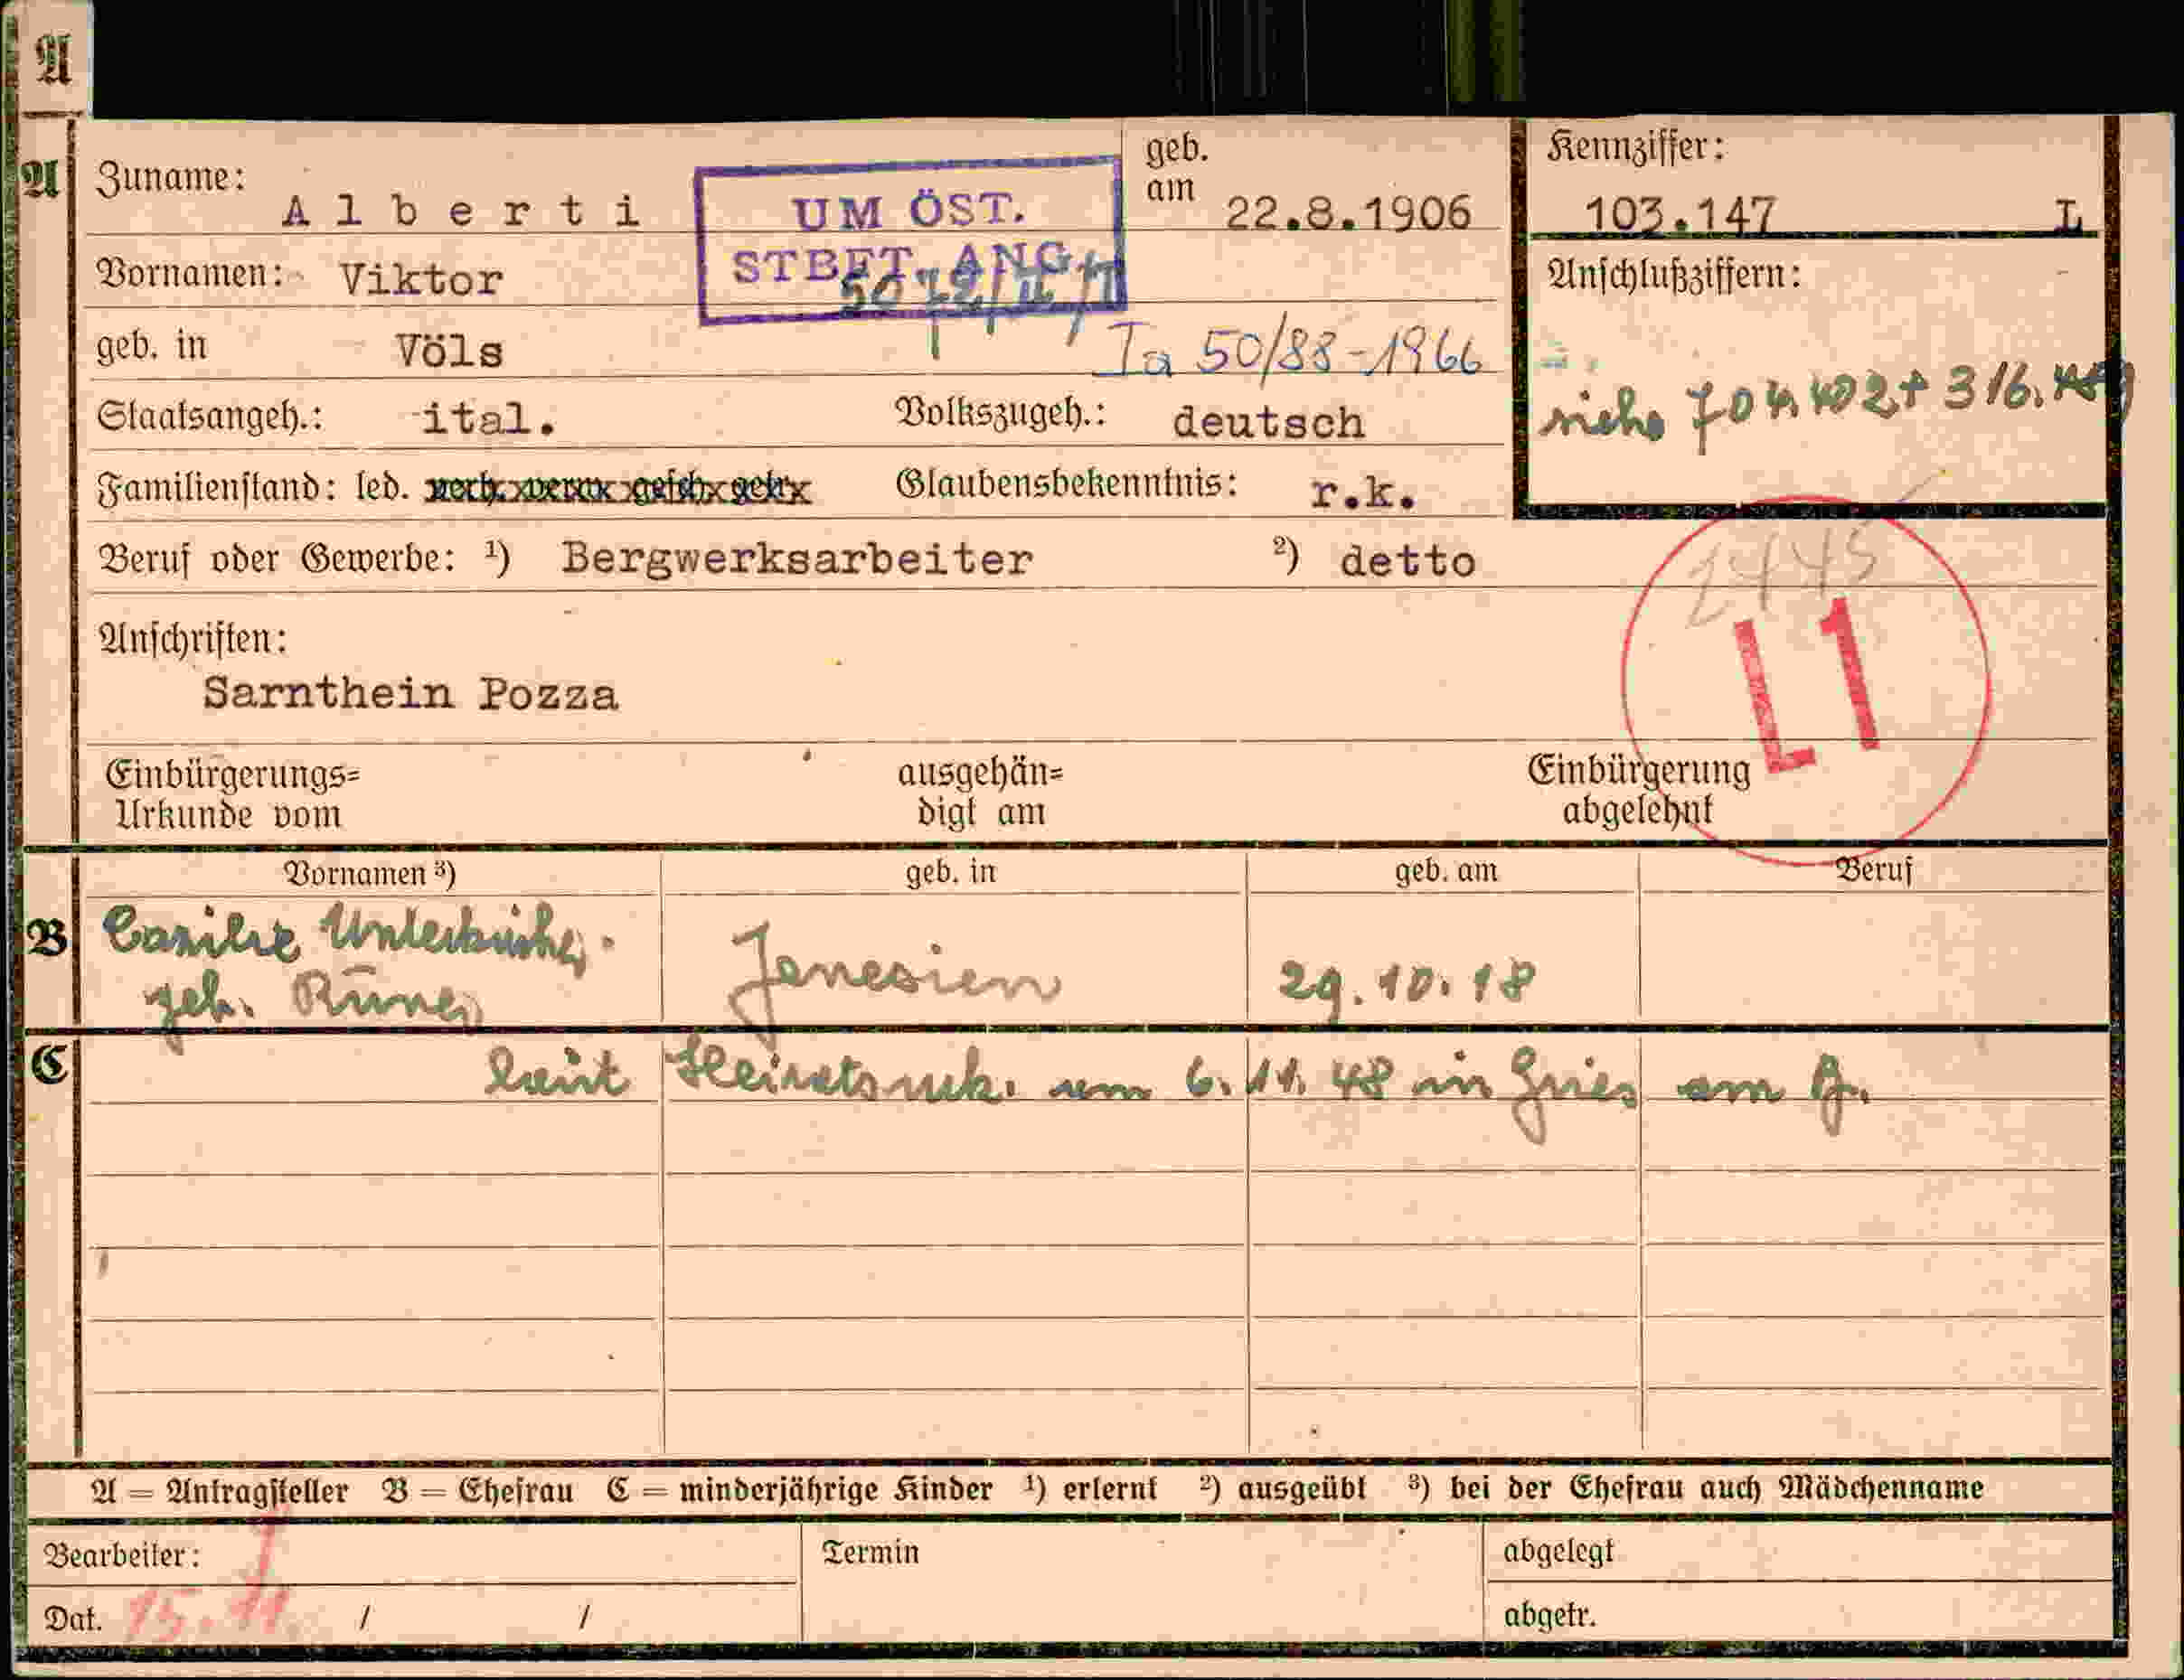 A
A
Zuname: Alberti
UM ÖST.
STBFT. ANG.
geb. am 22.8.1906
Kennziffer:
103.147 L
Vornamen: Viktor
Anschlußziffern:
geb. in Völs
Ia 50/83-1966
siehe 704.102 + 316.
Staatsangeh.: ital. Volkszugeh.: deutsch
Familienstand: led. verh. verw. gesch. getr. Glaubensbekenntnis: r.k.
Beruf oder Gewerbe: ¹) Bergwerksarbeiter ²) detto
L1
Anschriften:
Sarnthein Pozza
Einbürgerungs= ausgehän= Einbürgerung
Urkunde vom digt am abgelehnt
Vornamen ³) geb. in geb. am Beruf
B
geb. Jenesien 29.10.18
C laut Heiratsurk. vom 6.11.48 in Gries am B.
A = Antragsteller B = Ehefrau C = minderjährige Kinder ¹) erlernt ²) ausgeübt ³) bei der Ehefrau auch Mädchenname
Bearbeiter: Termin abgelegt
Dat. 15. 11. / / abgetr.